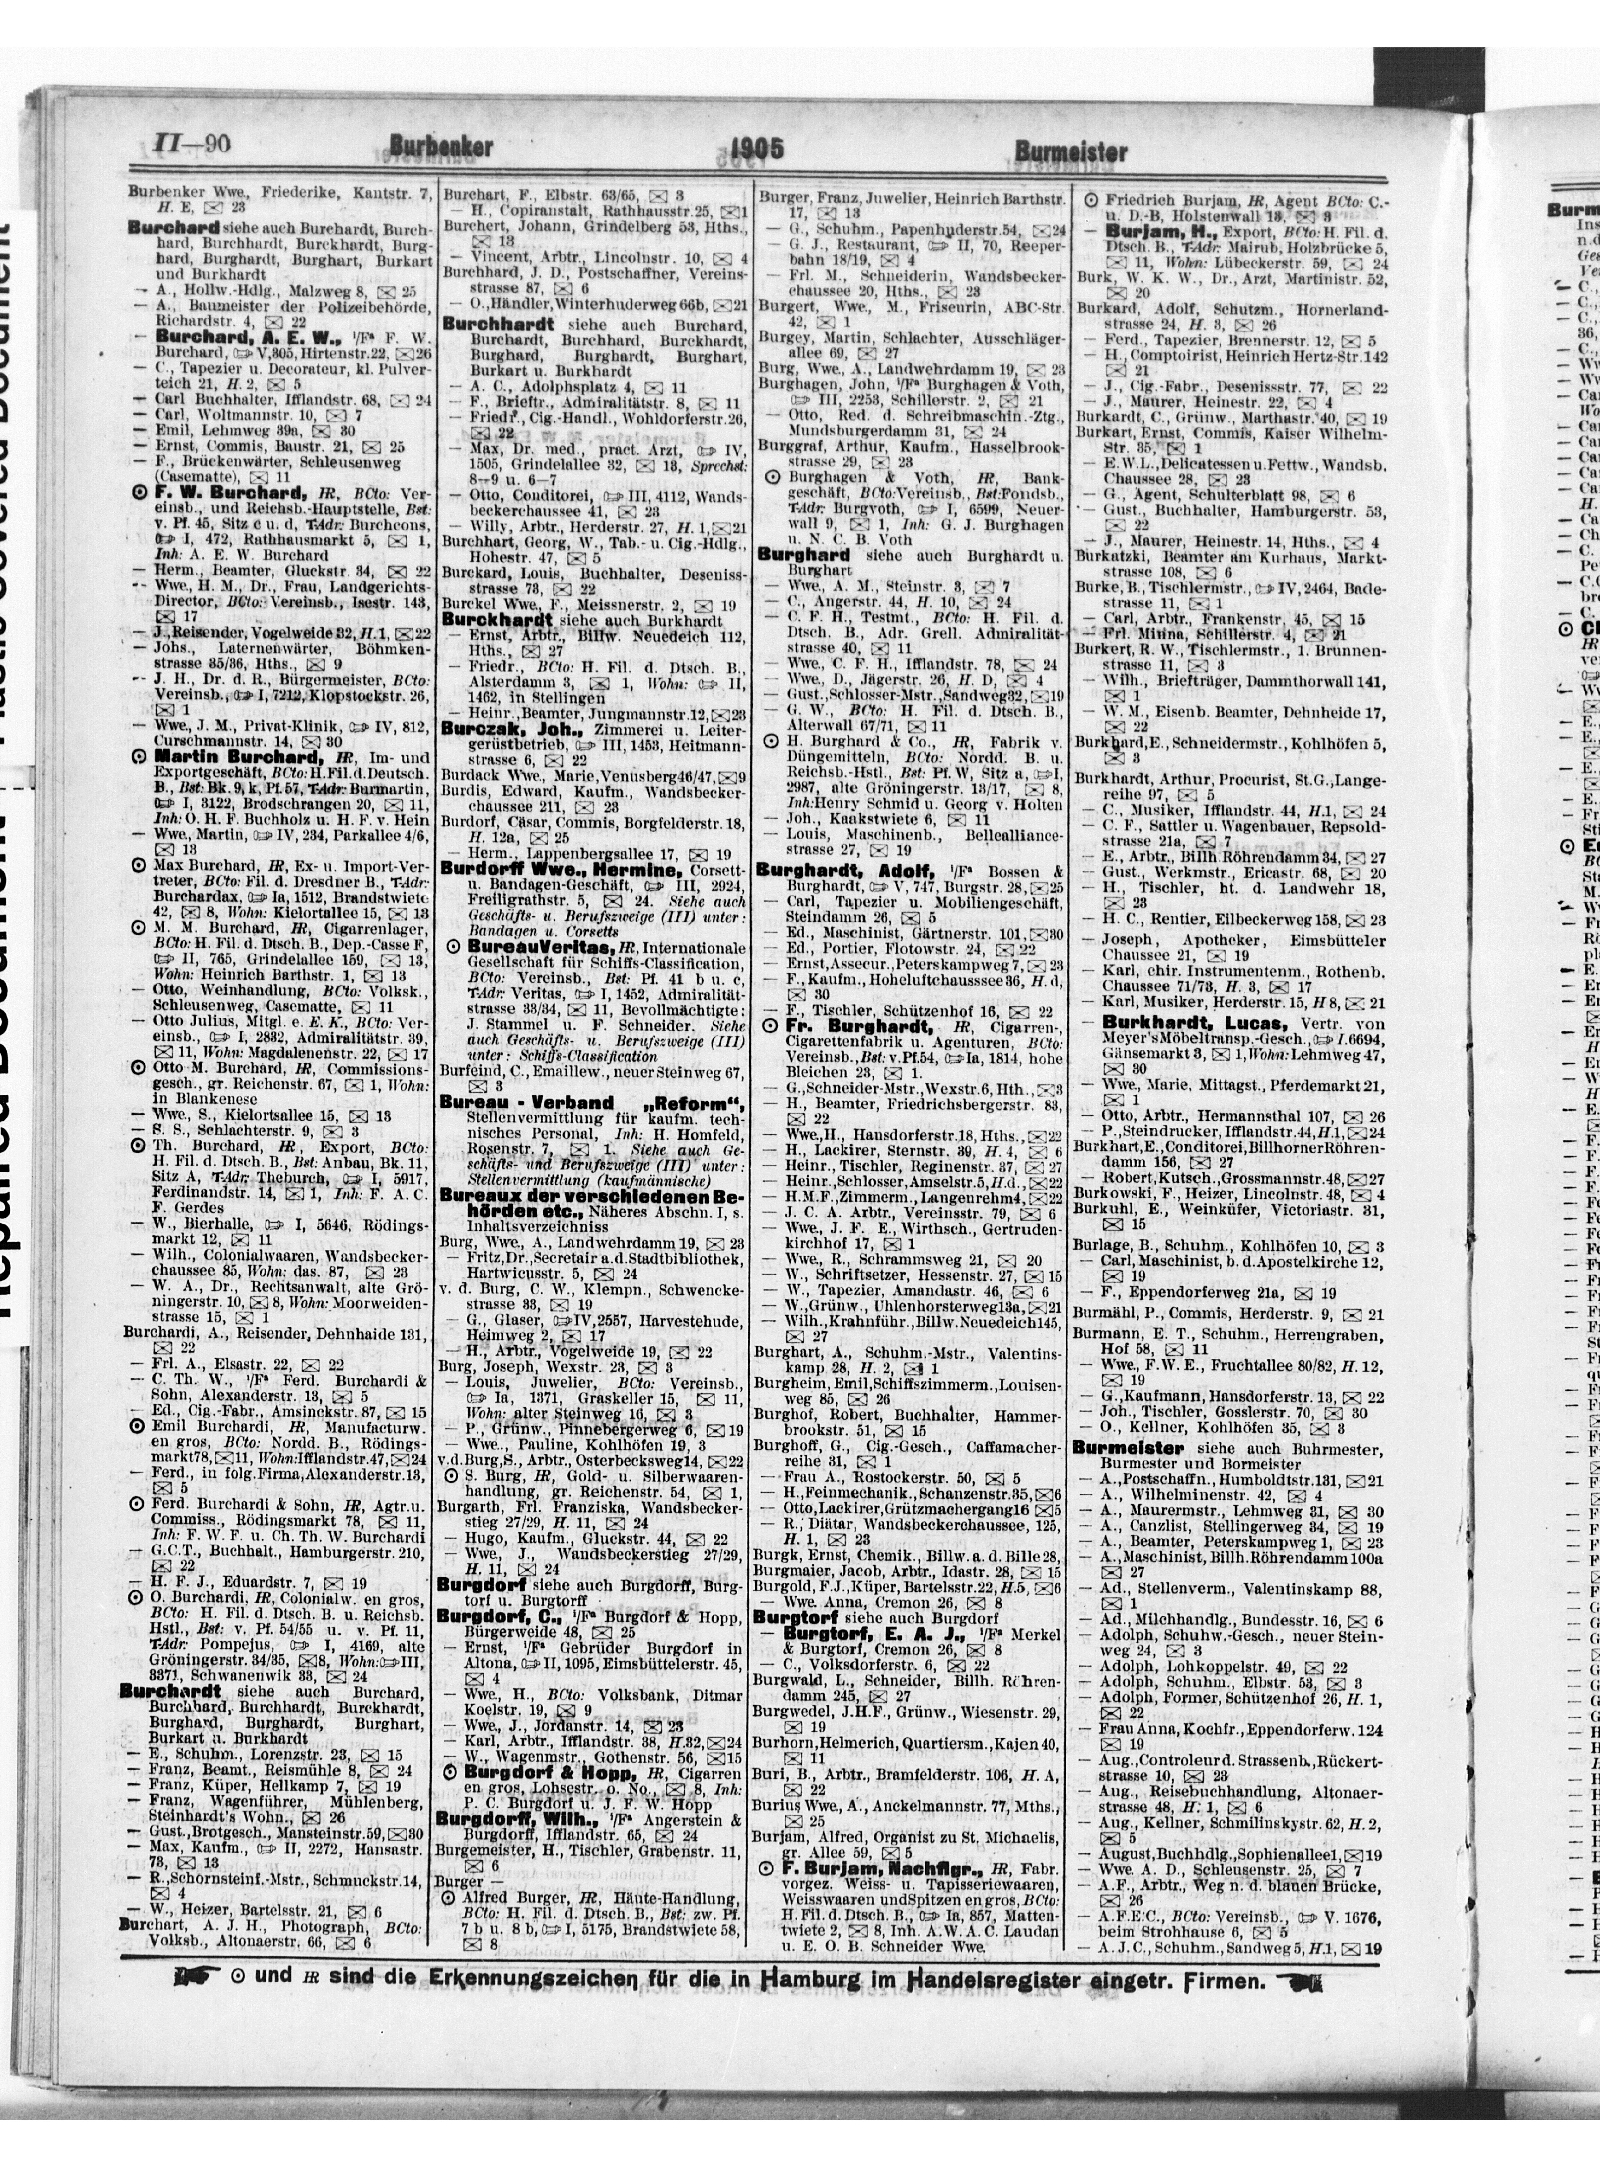 II—90
Burbenker
1905
Burmeister
Burbenker Wwe., Friederike, Kantstr. 7,
H. E, 23
Burchard siehe auch Burchardt, Burch-
hard, Burchhardt, Burckhardt, Burg-
hard, Burghardt, Burghart, Burkart
und Burkhardt
— A., Hollw.-Hdlg., Malzweg 8, 25
— A., Baumeister der Polizeibehörde,
Richardstr. 4, 22
— Burchard, A. E. W., i/Fa F. W.
Burchard, V, 305, Hirtenstr. 22, 26
— C., Tapezier u. Decorateur, kl. Pulver-
teich 21, H. 2, 5
— Carl Buchhalter, Ifflandstr. 68, 24
— Carl, Woltmannstr. 10, 7
— Emil, Lehmweg 39a, 30
— Ernst, Commis, Baustr. 21, 25
— F., Brückenwärter, Schleusenweg
(Casematte), 11
⊙ F. W. Burchard, HR, BCto: Ver-
einsb., und Reichsb.-Hauptstelle, Bst:
v. Pf. 45, Sitz c u. d, T-Adr: Burchcons,
I, 472, Rathhausmarkt 5, 1,
Inh: A. E. W. Burchard
— Herm., Beamter, Gluckstr. 34, 22
— Wwe., H. M., Dr., Frau, Landgerichts-
Director, BCto: Vereinsb., Isestr. 143,
17
— J., Reisender, Vogelweide 32, H. 1, 22
— Johs., Laternenwärter, Böhmken-
strasse 35/36, Hths., 9
— J. H., Dr. d. R., Bürgermeister, BCto:
Vereinsb., I, 7212, Klopstockstr. 26,
1
— Wwe., J. M., Privat-Klinik, IV, 812,
Curschmannstr. 14, 30
⊙ Martin Burchard, HR, Im- und
Exportgeschäft, BCto: H. Fil. d. Deutsch.
B., Bst: Bk. 9, k, Pf. 57, T-Adr: Burmartin,
I, 3122, Brodschrangen 20, 11,
Inh: O. H. F. Buchholz u. H. F. v. Hein
— Wwe., Martin, IV, 234, Parkallee 4/6,
13
⊙ Max Burchard, HR, Ex- u. Import-Ver-
treter, BCto: Fil. d. Dresdner B., T-Adr:
Burchardax, Ia, 1512, Brandstwiete
42, 8, Wohn: Kielortallee 15, 13
⊙ M. M. Burchard, HR, Cigarrenlager,
BCto: H. Fil. d. Dtsch. B., Dep.-Casse F,
II, 765, Grindelallee 159, 13,
Wohn: Heinrich Barthstr. 1, 13
— Otto, Weinhandlung, BCto: Volksk.,
Schleusenweg, Casematte, 11
— Otto Julius, Mitgl. e. E. K., BCto: Ver-
einsb., I, 2832, Admiralitätstr. 39,
11, Wohn: Magdalenenstr. 22, 17
⊙ Otto M. Burchard, HR, Commissions-
gesch., gr. Reichenstr. 67, 1, Wohn:
in Blankenese
— Wwe., S., Kielortsallee 15, 13
— S. S., Schlachterstr. 9, 3
⊙ Th. Burchard, HR, Export, BCto:
H. Fil. d. Dtsch. B., Bst: Anbau, Bk. 11,
Sitz A, T-Adr: Theburch, I, 5917,
Ferdinandstr. 14, 1, Inh: F. A. C.
F. Gerdes
— W., Bierhalle, I, 5646, Rödings-
markt 12, 11
— Wilh., Colonialwaaren, Wandsbecker-
chaussee 85, Wohn: das. 87, 23
— W. A., Dr., Rechtsanwalt, alte Grö-
ningerstr. 10, 8, Wohn: Moorweiden-
strasse 15, 1
Burchardi, A., Reisender, Dehnhaide 131,
22
— Frl. A., Elsastr. 22, 22
— C. Th. W., i/Fa Ferd. Burchardi &
Sohn, Alexanderstr. 13, 5
— Ed., Cig.-Fabr., Amsinckstr. 87, 15
⊙ Emil Burchardi, HR, Manufacturw.
en gros, BCto: Nordd. B., Rödings-
markt 78, 11, Wohn: Ifflandstr. 47, 24
— Ferd., in folg. Firma, Alexanderstr. 13,
5
⊙ Ferd. Burchardi & Sohn, HR, Agtr. u.
Commiss., Rödingsmarkt 78, 11,
Inh: F. W. F. u. Ch. Th. W. Burchardi
— G. C. T., Buchhalt., Hamburgerstr. 210,
22
— H. F. J., Eduardstr. 7, 19
⊙ O. Burchardi, HR, Colonialw. en gros,
BCto: H. Fil. d. Dtsch. B. u. Reichsb.
Hstl., Bst: v. Pf. 54/55 u. v. Pf. 11,
T-Adr: Pompejus, I, 4169, alte
Gröningerstr. 34/35, 8, Wohn: III,
3371, Schwanenwik 33, 24
Burchardt siehe auch Burchard,
Burchhard, Burchhardt, Burckhardt,
Burghard, Burghardt, Burghart,
Burkart u. Burkhardt
— E., Schuhm., Lorenzstr. 23, 15
— Franz, Beamt., Reismühle 8, 24
— Franz, Küper, Hellkamp 7, 19
— Franz, Wagenführer, Mühlenberg,
Steinhardt's Wohn., 26
— Gust., Brotgesch., Mansteinstr. 59, 30
— Max, Kaufm., II, 2272, Hansastr.
73, 13
— R., Schornsteinf.-Mstr., Schmuckstr. 14,
4
— W., Heizer, Bartelsstr. 21, 6
Burchart, A. J. H., Photograph, BCto:
Volksb., Altonaerstr. 66, 6
Burchart, F., Elbstr. 63/65, 3
— H., Copiranstalt, Rathhausstr. 25, 1
Burchert, Johann, Grindelberg 53, Hths.,
13
— Vincent, Arbtr., Lincolnstr. 10, 4
Burchhard, J. D., Postschaffner, Vereins-
strasse 87, 6
— O., Händler, Winterhuderweg 66b, 21
Burchhardt siehe auch Burchard,
Burchardt, Burchhard, Burckhardt,
Burghard, Burghardt, Burghart,
Burkart u. Burkhardt
— A. C., Adolphsplatz 4, 11
— F., Brieftr., Admiralitätstr. 8, 11
— Friedr., Cig.-Handl., Wohldorferstr. 26,
22
— Max, Dr. med., pract. Arzt, IV,
1505, Grindelallee 32, 13, Sprechst:
8—9 u. 6—7
— Otto, Conditorei, III, 4112, Wands-
beckerchaussee 41, 23
— Willy, Arbtr., Herderstr. 27, H. 1, 21
Burchhart, Georg, W., Tab.- u. Cig.-Hdlg.,
Hohestr. 47, 5
Burckard, Louis, Buchhalter, Deseniss-
strasse 73, 22
Burckel Wwe., F., Meissnerstr. 2, 19
Burckhardt siehe auch Burkhardt
— Ernst, Arbtr., Billw. Neuedeich 112,
Hths., 27
— Friedr., BCto: H. Fil. d. Dtsch. B.,
Alsterdamm 3, 1, Wohn: II,
1462, in Stellingen
— Heinr., Beamter, Jungmannstr. 12, 23
Burczak, Joh., Zimmerei u. Leiter-
gerüstbetrieb, III, 1453, Heitmann-
strasse 6, 22
Burdack Wwe., Marie, Venusberg 46/47, 9
Burdis, Edward, Kaufm., Wandsbecker-
chaussee 211, 23
Burdorf, Cäsar, Commis, Borgfelderstr. 18,
H. 12a, 25
— Herm., Lappenbergsallee 17, 19
Burdorff Wwe., Hermine, Corsett-
u. Bandagen-Geschäft, III, 2924,
Freiligrathstr. 5, 24. Siehe auch
Geschäfts- u. Berufszweige (III) unter:
Bandagen u. Corsetts
⊙ Bureau Veritas, HR, Internationale
Gesellschaft für Schiffs-Classification,
BCto: Vereinsb., Bst: Pf. 41 b u. c,
T-Adr: Veritas, I, 1452, Admiralität-
strasse 33/34, 11, Bevollmächtigte:
J. Stammel u. F. Schneider. Siehe
auch Geschäfts- u. Berufszweige (III)
unter: Schiffs-Classification
Burfeind, C., Emaillew., neuer Steinweg 67,
3
Bureau - Verband „Reform“,
Stellenvermittlung für kaufm. tech-
nisches Personal, Inh: H. Homfeld,
Rosenstr. 7, 1. Siehe auch Ge-
schäfts- und Berufszweige (III) unter:
Stellenvermittlung (kaufmännische)
Bureaux der verschiedenen Be-
hörden etc., Näheres Abschn. I, s.
Inhaltsverzeichniss
Burg, Wwe., A., Landwehrdamm 19, 23
— Fritz, Dr., Secretair a. d. Stadtbibliothek,
Hartwicusstr. 5, 24
v. d. Burg, C. W., Klempn., Schwencke-
strasse 33, 19
— G., Glaser, IV, 2557, Harvestehude,
Heimweg 2, 17
— H., Arbtr., Vogelweide 19, 22
Burg, Joseph, Wexstr. 23, 3
— Louis, Juwelier, BCto: Vereinsb.,
Ia, 1371, Graskeller 15, 11,
Wohn: alter Steinweg 16, 3
— P., Grünw., Pinnebergerweg 6, 19
— Wwe., Pauline, Kohlhöfen 19, 3
v. d. Burg, S., Arbtr., Osterbecksweg 14, 22
⊙ S. Burg, HR, Gold- u. Silberwaaren-
handlung, gr. Reichenstr. 54, 1,
Burgarth, Frl. Franziska, Wandsbecker-
stieg 27/29, H. 11, 24
— Hugo, Kaufm., Gluckstr. 44, 22
— Wwe., J., Wandsbeckerstieg 27/29,
H. 11, 24
Burgdorf siehe auch Burgdorff, Burg-
torf u. Burgtorff
Burgdorf, C., i/Fa Burgdorf & Hopp,
Bürgerweide 48, 25
— Ernst, i/Fa Gebrüder Burgdorf in
Altona, II, 1095, Eimsbüttelerstr. 45,
4
— Wwe., H., BCto: Volksbank, Ditmar
Koelstr. 19, 9
— Wwe., J., Jordanstr. 14, 23
— Karl, Arbtr., Ifflandstr. 38, H. 32, 24
— W., Wagenmstr., Gothenstr. 56, 15
⊙ Burgdorf & Hopp, HR, Cigarren
en gros, Lohsestr. o. No., 8, Inh:
P. C. Burgdorf u. J. F. W. Hopp
Burgdorff, Wilh., i/Fa Angerstein &
Burgdorff, Ifflandstr. 65, 24
Burgemeister, H., Tischler, Grabenstr. 11,
6
Burger —
⊙ Alfred Burger, HR, Häute-Handlung,
BCto: H. Fil. d. Dtsch. B., Bst: zw. Pf.
7 b u. 8 b, I, 5175, Brandstwiete 58,
8
Burger, Franz, Juwelier, Heinrich Barthstr.
17, 13
— G., Schuhm., Papenhuderstr. 54, 24
— G. J., Restaurant, II, 70, Reeper-
bahn 18/19, 4
— Frl. M., Schneiderin, Wandsbecker-
chaussee 20, Hths., 23
Burgert, Wwe., M., Friseurin, ABC-Str.
42, 1
Burgey, Martin, Schlachter, Ausschläger-
allee 69, 27
Burg, Wwe., A., Landwehrdamm 19, 23
Burghagen, John, i/Fa Burghagen & Voth,
III, 2253, Schillerstr. 2, 21
— Otto, Red. d. Schreibmaschin.-Ztg.,
Mundsburgerdamm 31, 24
Burggraf, Arthur, Kaufm., Hasselbrook-
strasse 29, 23
⊙ Burghagen & Voth, HR, Bank-
geschäft, BCto: Vereinsb., Bst: Fondsb.,
T-Adr: Burgvoth, I, 6599, Neuer-
wall 9, 1, Inh: G. J. Burghagen
u. N. C. B. Voth
Burghard siehe auch Burghardt u.
Burghart
— Wwe., A. M., Steinstr. 3, 7
— C., Angerstr. 44, H. 10, 24
— C. F. H., Testmt., BCto: H. Fil. d.
Dtsch. B., Adr. Grell. Admiralität-
strasse 40, 11
— Wwe., C. F. H., Ifflandstr. 78, 24
— Wwe., D., Jägerstr. 26, H. D, 4
— Gust., Schlosser-Mstr., Sandweg 32, 19
— G. W., BCto: H. Fil. d. Dtsch. B.,
Alterwall 67/71, 11
⊙ H. Burghard & Co., HR, Fabrik v.
Düngemitteln, BCto: Nordd. B. u.
Reichsb.-Hstl., Bst: Pf. W, Sitz a, I,
2987, alte Gröningerstr. 13/17, 8,
Inh: Henry Schmid u. Georg v. Holten
— Joh., Kaakstwiete 6, 11
— Louis, Maschinenb., Bellealliance-
strasse 27, 19
Burghardt, Adolf, i/Fa Bossen &
Burghardt, V, 747, Burgstr. 28, 25
— Carl, Tapezier u. Mobiliengeschäft,
Steindamm 26, 5
— Ed., Maschinist, Gärtnerstr. 101, 30
— Ed., Portier, Flotowstr. 24, 22
— Ernst, Assecur., Peterskampweg 7, 23
— F., Kaufm., Hoheluftchausssee 36, H. d,
30
— F., Tischler, Schützenhof 16, 22
⊙ Fr. Burghardt, HR, Cigarren-,
Cigarettenfabrik u. Agenturen, BCto:
Vereinsb., Bst: v. Pf. 54, Ia, 1814, hohe
Bleichen 23, 1.
— G., Schneider-Mstr., Wexstr. 6, Hth., 3
— H., Beamter, Friedrichsbergerstr. 83,
22
— Wwe., H., Hansdorferstr. 18, Hths., 22
— H., Lackirer, Sternstr. 39, H. 4, 6
— Heinr., Tischler, Reginenstr. 37, 27
— Heinr., Schlosser, Amselstr. 5, H. d., 22
— H. M. F., Zimmerm., Langenrehm 4, 22
— J. C. A. Arbtr., Vereinsstr. 79, 6
— Wwe., J. F. E., Wirthsch., Gertruden-
kirchhof 17, 1
— Wwe., R., Schrammsweg 21, 20
— W., Schriftsetzer, Hessenstr. 27, 15
— W., Tapezier, Amandastr. 46, 6
— W., Grünw., Uhlenhorsterweg 13a, 21
— Wilh., Krahnführ., Billw. Neuedeich 145,
27
Burghart, A., Schuhm.-Mstr., Valentins-
kamp 28, H. 2, 1
Burgheim, Emil, Schiffszimmerm., Louisen-
weg 85, 26
Burghof, Robert, Buchhalter, Hammer-
brookstr. 51, 15
Burghoff, G., Cig.-Gesch., Caffamacher-
reihe 31, 1
— Frau A., Rostockerstr. 50, 5
— H., Feinmechanik., Schanzenstr. 35, 6
— Otto, Lackirer, Grützmachergang 16 5
— R., Diätar, Wandsbeckerchaussee, 125,
H. 1, 23
Burgk, Ernst, Chemik., Billw. a. d. Bille 28,
Burgmaier, Jacob, Arbtr., Idastr. 28, 15
Burgold, F. J., Küper, Bartelsstr. 22, H. 5, 6
— Wwe. Anna, Cremon 26, 8
Burgtorf siehe auch Burgdorf
— Burgtorf, E. A. J., i/Fa Merkel
& Burgtorf, Cremon 26, 8
— C., Volksdorferstr. 6, 22
Burgwald, L., Schneider, Billh. Röhren-
damm 245, 27
Burgwedel, J. H. F., Grünw., Wiesenstr. 29,
19
Burhorn, Helmerich, Quartiersm., Kajen 40,
11
Buri, B., Arbtr., Bramfelderstr. 106, H. A,
22
Burius Wwe., A., Anckelmannstr. 77, Mths.,
25
Burjam, Alfred, Organist zu St. Michaelis,
gr. Allee 59, 5
⊙ F. Burjam, Nachflgr., HR, Fabr.
vorgez. Weiss- u. Tapisseriewaaren,
Weisswaaren und Spitzen en gros, BCto:
H. Fil. d. Dtsch. B., Ia, 857, Matten-
twiete 2, 8, Inh. A. W. A. C. Laudan
u. E. O. B. Schneider Wwe.
⊙ Friedrich Burjam, HR, Agent BCto: C.-
u. D.-B, Holstenwall 13, 3
— Burjam, H., Export, BCto: H. Fil. d.
Dtsch. B., T-Adr: Mairub, Holzbrücke 5,
11, Wohn: Lübeckerstr. 59, 24
Burk, W. K. W., Dr., Arzt, Martinistr. 52,
20
Burkard, Adolf, Schutzm., Hornerland-
strasse 24, H. 3, 26
— Ferd., Tapezier, Brennerstr. 12, 5
— H., Comptoirist, Heinrich Hertz-Str. 142
21
— J., Cig.-Fabr., Desenissstr. 77, 22
— J., Maurer, Heinestr. 22, 4
Burkardt, C., Grünw., Marthastr. 40, 19
Burkart, Ernst, Commis, Kaiser Wilhelm-
Str. 35, 1
— E. W. L., Delicatessen u. Fettw., Wandsb.
Chaussee 28, 23
— G., Agent, Schulterblatt 98, 6
— Gust., Buchhalter, Hamburgerstr. 53,
22
— J., Maurer, Heinestr. 14, Hths., 4
Burkatzki, Beamter am Kurhaus, Markt-
strasse 108, 6
Burke, B., Tischlermstr., IV, 2464, Bade-
strasse 11, 1
— Carl, Arbtr., Frankenstr, 45, 15
— Frl. Minna, Schillerstr. 4, 21
Burkert, R. W., Tischlermstr., 1. Brunnen-
strasse 11, 3
— Wilh., Briefträger, Dammthorwall 141,
1
— W. M., Eisenb. Beamter, Dehnheide 17,
22
Burkhard, E., Schneidermstr., Kohlhöfen 5,
3
Burkhardt, Arthur, Procurist, St. G., Lange-
reihe 97, 5
— C., Musiker, Ifflandstr. 44, H. 1, 24
— C. F., Sattler u. Wagenbauer, Repsold-
strasse 21a, 7
— E., Arbtr., Billh. Röhrendamm 34, 27
— Gust., Werkmstr., Ericastr. 68, 20
— H., Tischler, ht. d. Landwehr 18,
23
— H. C., Rentier, Eilbeckerweg 158, 23
— Joseph, Apotheker, Eimsbütteler
Chaussee 21, 19
— Karl, chir. Instrumentenm., Rothenb.
Chaussee 71/73, H. 3, 17
— Karl, Musiker, Herderstr. 15, H 8, 21
— Burkhardt, Lucas, Vertr. von
Meyer's Möbeltransp.-Gesch., I. 6694,
Gänsemarkt 3, 1, Wohn: Lehmweg 47,
30
— Wwe., Marie, Mittagst., Pferdemarkt 21,
1
— Otto, Arbtr., Hermannsthal 107, 26
— P., Steindrucker, Ifflandstr. 44, H. 1, 24
Burkhart, E., Conditorei, Billhorner Röhren-
damm 156, 27
— Robert, Kutsch., Grossmannstr. 48, 27
Burkowski, F., Heizer, Lincolnstr. 48, 4
Burkuhl, E., Weinküfer, Victoriastr. 31,
15
Burlage, B., Schuhm., Kohlhöfen 10, 3
— Carl, Maschinist, b. d. Apostelkirche 12,
19
— F., Eppendorferweg 21a, 19
Burmähl, P., Commis, Herderstr. 9, 21
Burmann, E. T., Schuhm., Herrengraben,
Hof 58, 11
— Wwe., F. W. E., Fruchtallee 80/82, H. 12,
19
— G., Kaufmann, Hansdorferstr. 13, 22
— Joh., Tischler, Gosslerstr. 70, 30
— O., Kellner, Kohlhöfen 35, 3
Burmeister siehe auch Buhrmester,
Burmester und Bormeister
— A., Postschaffn., Humboldtstr. 131, 21
— A., Wilhelminenstr. 42, 4
— A., Maurermstr., Lehmweg 31, 30
— A., Canzlist, Stellingerweg 34, 19
— A., Beamter, Peterskampweg 1, 23
— A., Maschinist, Billh. Röhrendamm 100a
27
— Ad., Stellenverm., Valentinskamp 88,
1
— Ad., Milchhandlg., Bundesstr. 16, 6
— Adolph, Schuhw.-Gesch., neuer Stein-
weg 24, 3
— Adolph, Lohkoppelstr. 49, 22
— Adolph, Schuhm., Elbstr. 53, 3
— Adolph, Former, Schützenhof 26, H. 1,
22
— Frau Anna, Kochfr., Eppendorferw. 124
19
— Aug., Controleur d. Strassenb., Rückert-
strasse 10, 23
— Aug., Reisebuchhandlung, Altonaer-
strasse 48, H. 1, 6
— Aug., Kellner, Schmilinskystr. 62, H. 2,
5
— August, Buchhdlg., Sophienallee 1, 19
— Wwe. A. D., Schleusenstr. 25, 7
— A. F., Arbtr., Weg n. d. blauen Brücke,
26
— A. F. E. C., BCto: Vereinsb., V. 1676,
beim Strohhause 6, 5
— A. J. C., Schuhm., Sandweg 5, H. 1, 19
⊙ und HR sind die Erkennungszeichen für die in Hamburg im Handelsregister eingetr. Firmen.